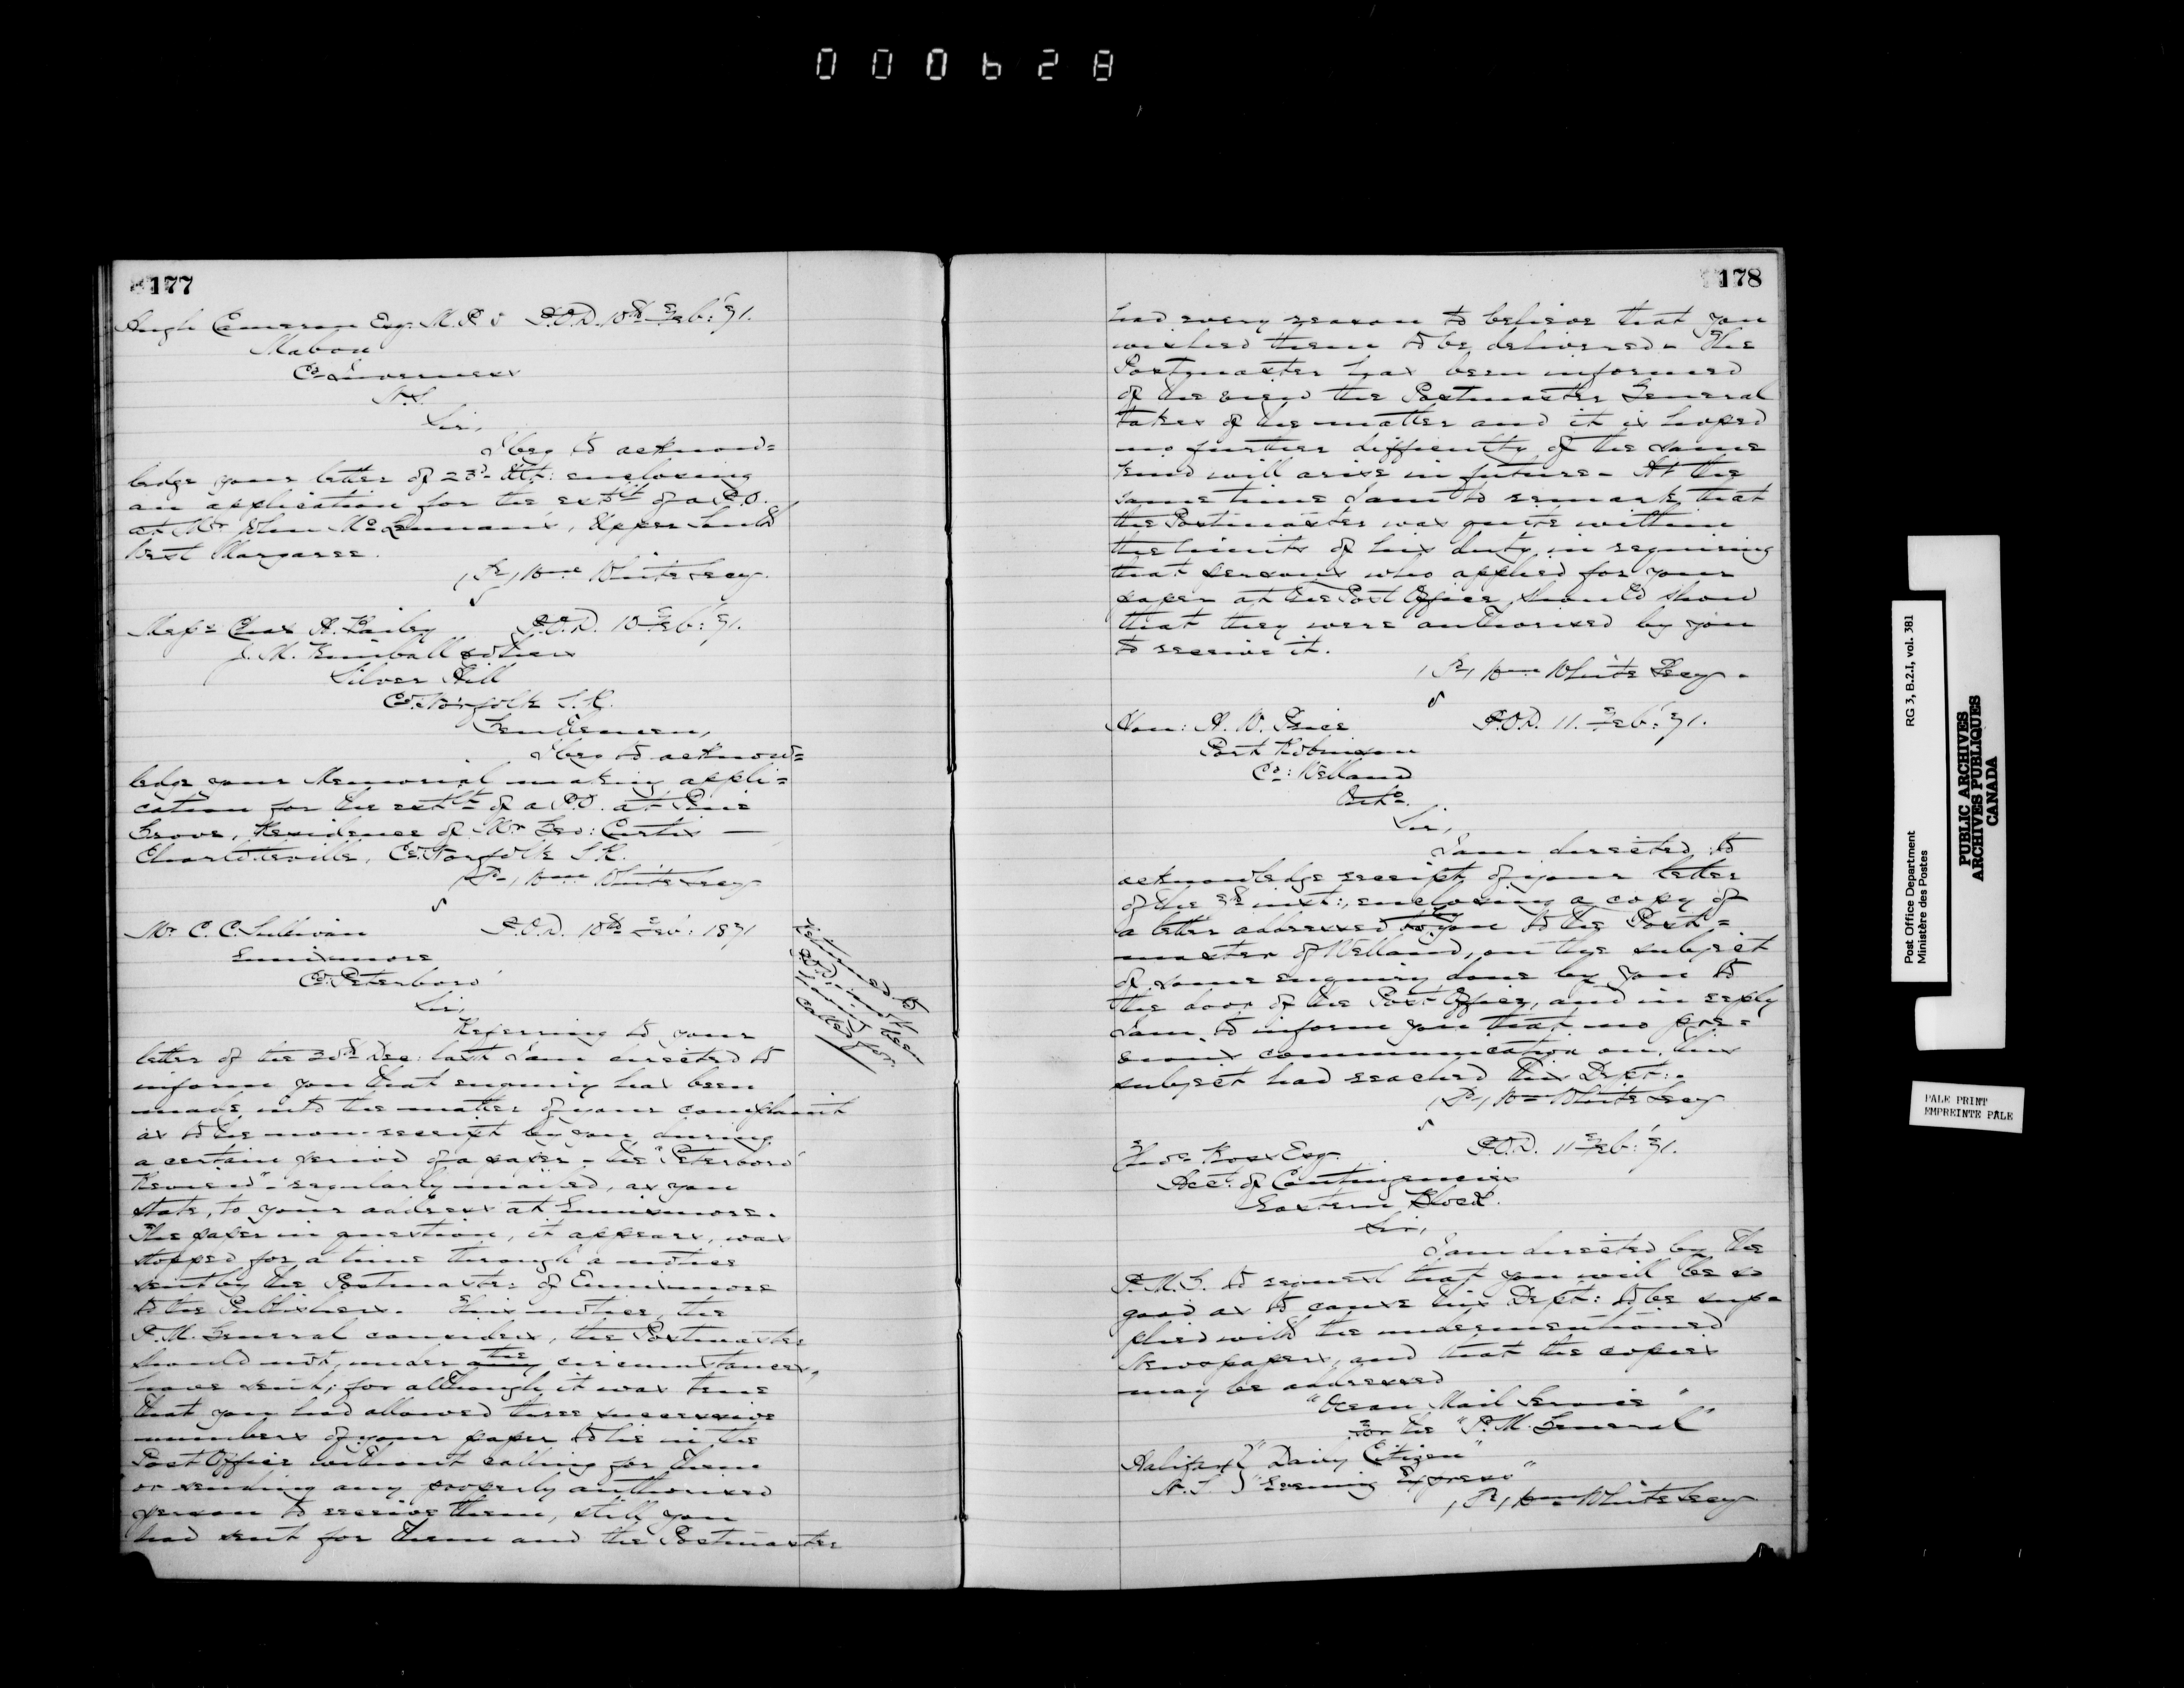 000628
177
Hugh Cameron Esq. M.P. P.O.D. 10th Feb: '71.
Mabou
Co Inverness
N.S.
Sir,
I beg to acknow=
ledge your letter of 23d Ult: enclosing
an application for the estt of a P.O.
at Mr John McLennan's, Upper South
West Margaree.
(Sd) Wm White Secy.
Messrs Chas H. Hailey P.O.D. 10 Feb: '71.
J. M. Kimball & others
Silver Hill
Co. Norfolk S.R.
Gentlemen,
I beg to acknow=
ledge your Memorial making appli=
cation for the estt of a P.O. at Pine
Grove, Residence of Mr Geo: Curtis —
Charlotteville, Co. Norfolk S.R.
(Sd) Wm White Secy
Mr C. C. Sullivan P.O.D. 10th Feb: 1871
Ennismore
Co. Peterboro'
Sir,
Referring to your
letter of the 30th Dec: last I am directed to
inform you that enquiry has been
made into the matter of your complaint
as to the non-receipt by you during
a certain period of a paper - the "Peterboro'
Review" - regularly mailed, as you
state, to your address at Ennismore.
The paper in question, it appears, was
stopped for a time through a notice
sent by the Postmaster of Ennismore
to the Publishers. This notice, the
P.M. General considers, the Postmaster
should not, under the circumstances,
have sent; for although it was true
that you had allowed three successive
numbers of your paper to lie in the
Post Office without calling for them
or sending any properly authorized
person to receive them, still you
had sent for them and the Postmaster
Returned to
P.O.D. not
having been
called for
178
had every reason to believe that you
wished them to be delivered - The
Postmaster has been informed
of the view the Postmaster General
takes of the matter and it is hoped
no further difficulty of the same
kind will arise in future - At the
same time I am to remark that
the Postmaster was quite within
the limits of his duty in requiring
that persons who applied for your
paper at the Post Office should show
that they were authorized by you
to receive it.
(Sd) Wm White Secy -
Hon: H. W. Price P.O.D. 11. Feb: '71.
Port Robinson
Co: Welland
Onto.
Sir,
I am directed to
acknowledge receipt of your letter
of the 9th inst:, enclosing a copy of
a letter addressed by you to the Post=
master of Welland, on the subject
of some enquiry done by you to
the door of the Post Office, and in reply
I am to inform you that no pre=
vious communication on this
subject had reached this Dept: -
(Sd) Wm White Secy
Thos Ross Esq. P.O.D. 11 Feb: '71.
Acct. of Contingencies
Eastern Block.
Sir,
I am directed by the
P.M.G. to request that you will be so
good as to cause this Dept: to be sup=
plied with the undermentioned
Newspapers, and that the copies
may be addressed
"Ocean Mail Service"
For the "P.M. General"
Halifax } "Daily Citizen"
N.S. } "Evening Express"
(Sd) Wm White Secy
Post Office Department RG 3, B.2.1, vol. 381
Ministère des Postes
PUBLIC ARCHIVES
ARCHIVES PUBLIQUES
CANADA
PALE PRINT
EMPREINTE PÂLE